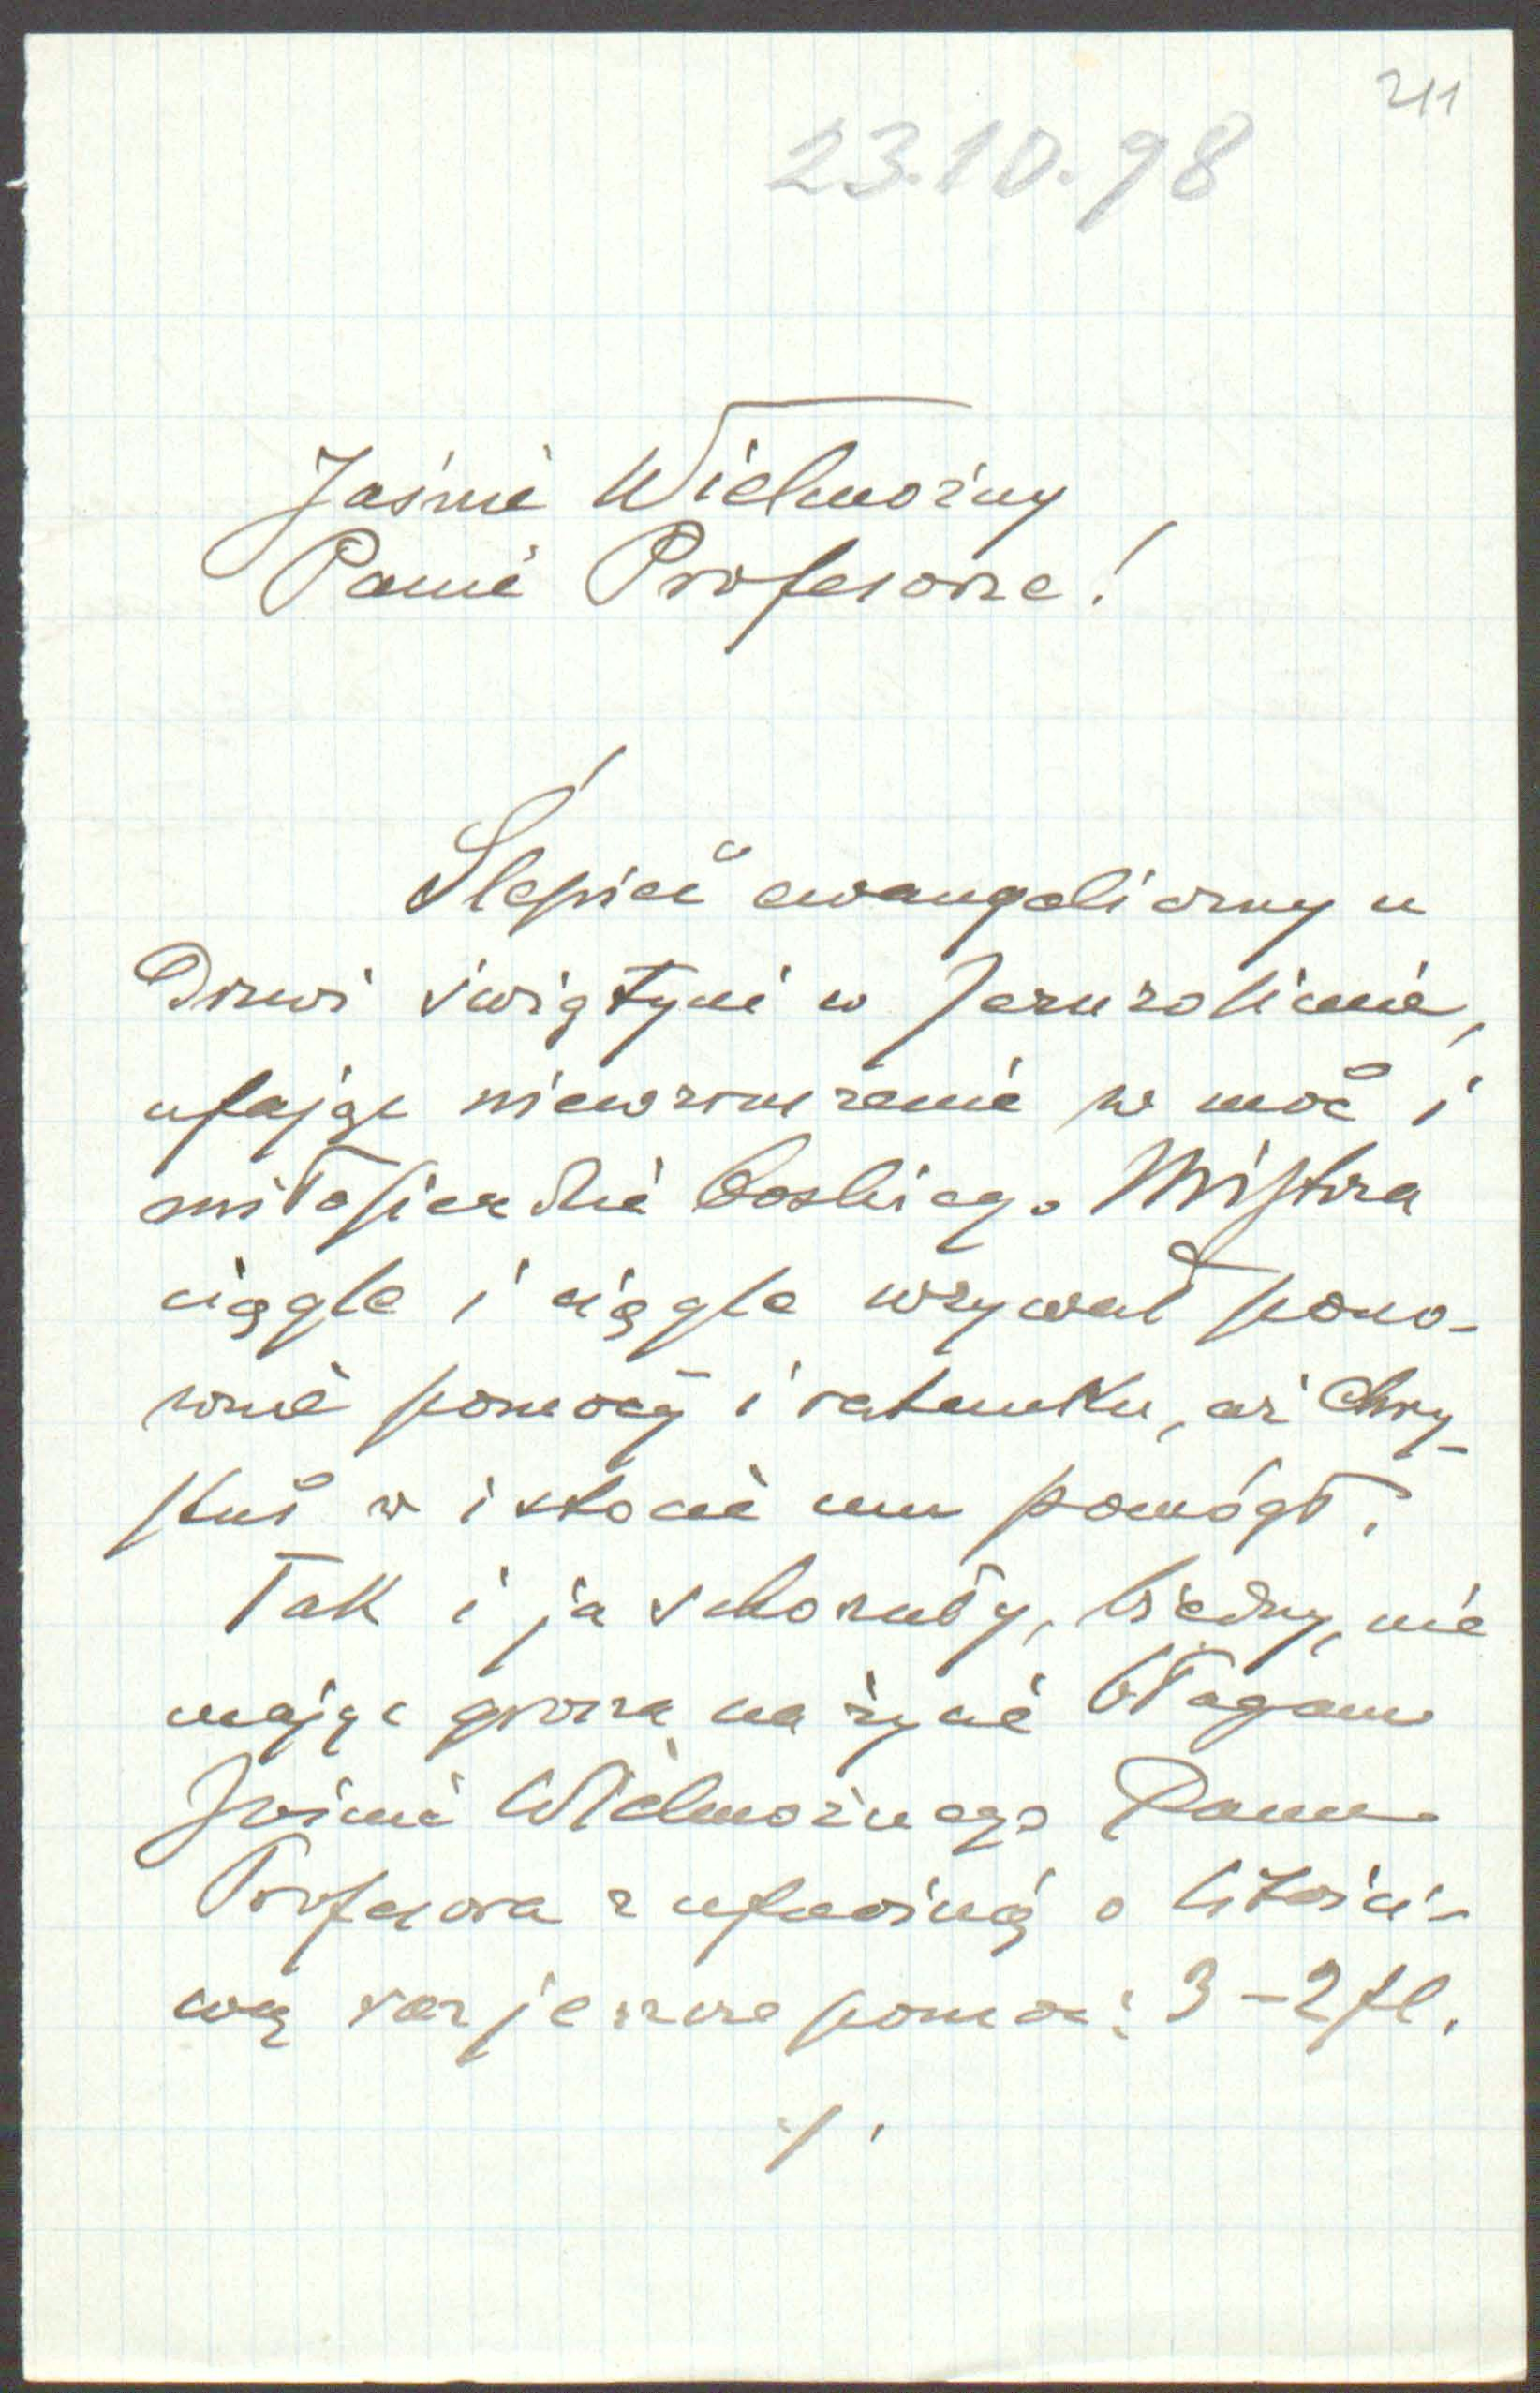 211
23.10.98
Jaśnie Wielmożny
Panie Profesorze!
Ślepiec ewangeliczny u
Drzwi świątyni w Jeruzolimie,
ufając niewzruszenie w moc i
miłosierdzie boskiego Mistrza
ciągle i ciągle wzywał pono-
wnie pomocy i ratunku, aż Chry-
stus w istocie mu pomógł.
Tak i ja schorzały, biedny, nie
mając grosza na życie błagam
Jaśnie Wielmożnego Pana
Profesora z ufnością o litości-
wą raz jeszcze pomoc: 3-2 fl.
./.